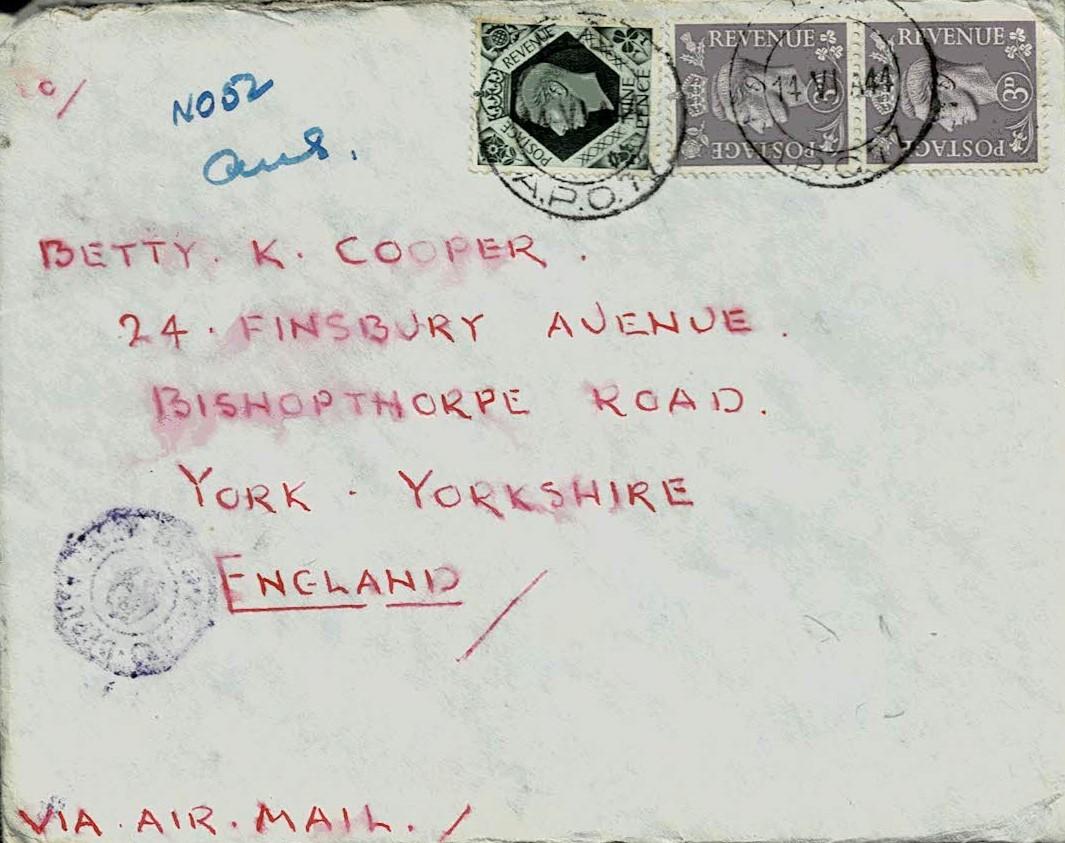 o/
NO 52
Ans.
REVENUE
NINE PENCE
POSTAGE
REVENUE
POSTAGE
REVENUE
3D
POSTAGE
14 VI 44
A.P.O.
BETTY. K. COOPER.
24. FINSBURY AVENUE.
BISHOPTHORPE ROAD.
YORK. YORKSHIRE
ENGLAND/
VIA. AIR. MAIL. /